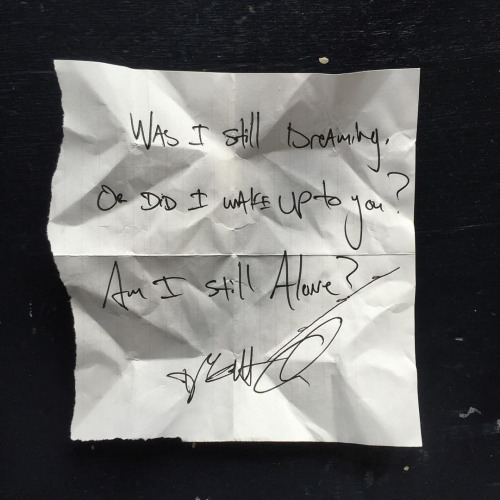 Was I still Dreaming,
Or Did I wake up to you?
Am I still Alone?